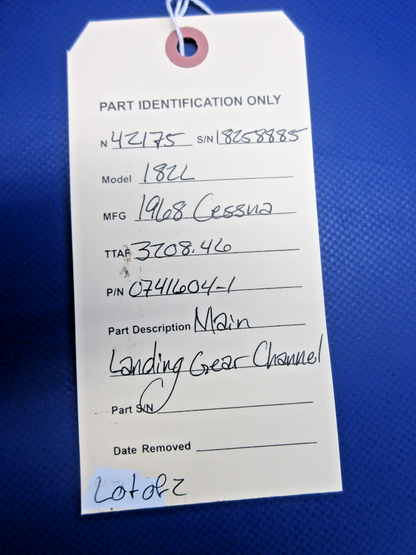 PART IDENTIFICATION ONLY
N 42175 S/N 18258885
Model 182L
MFG 1968 Cessna
TTAF 3208.46
P/N 0741604-1
Part Description Main
Landing Gear Channel
Part S/N
Date Removed
Lot of 2